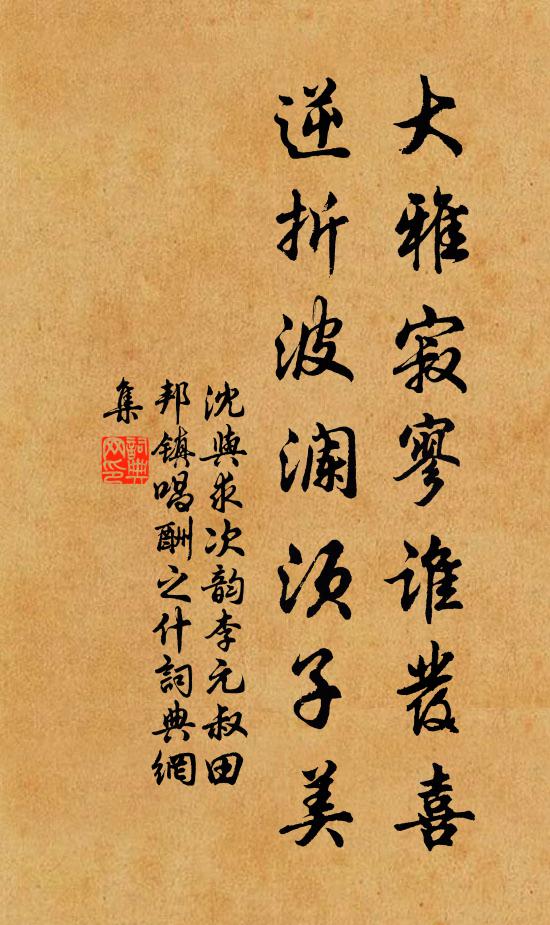 大雅寂寥谁发喜
逆折波澜须子美
沈與求次韵李元叔田
邦镇唱酬之什詞典網
集
詞典網印